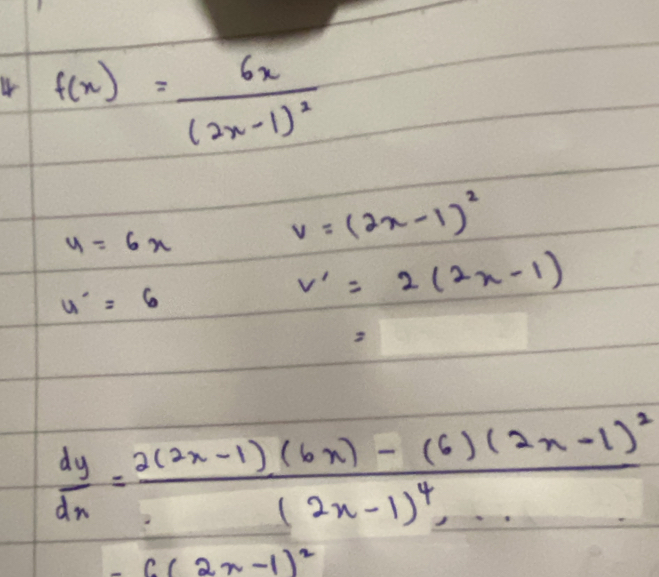 4 f(x) = 6x / (2x-1)²
u = 6x v = (2x-1)²
u' = 6 v' = 2(2x-1)
=
dy/dx = 2(2x-1)(6x) - (6)(2x-1)² / (2x-1)⁴
= 6(2x-1)²